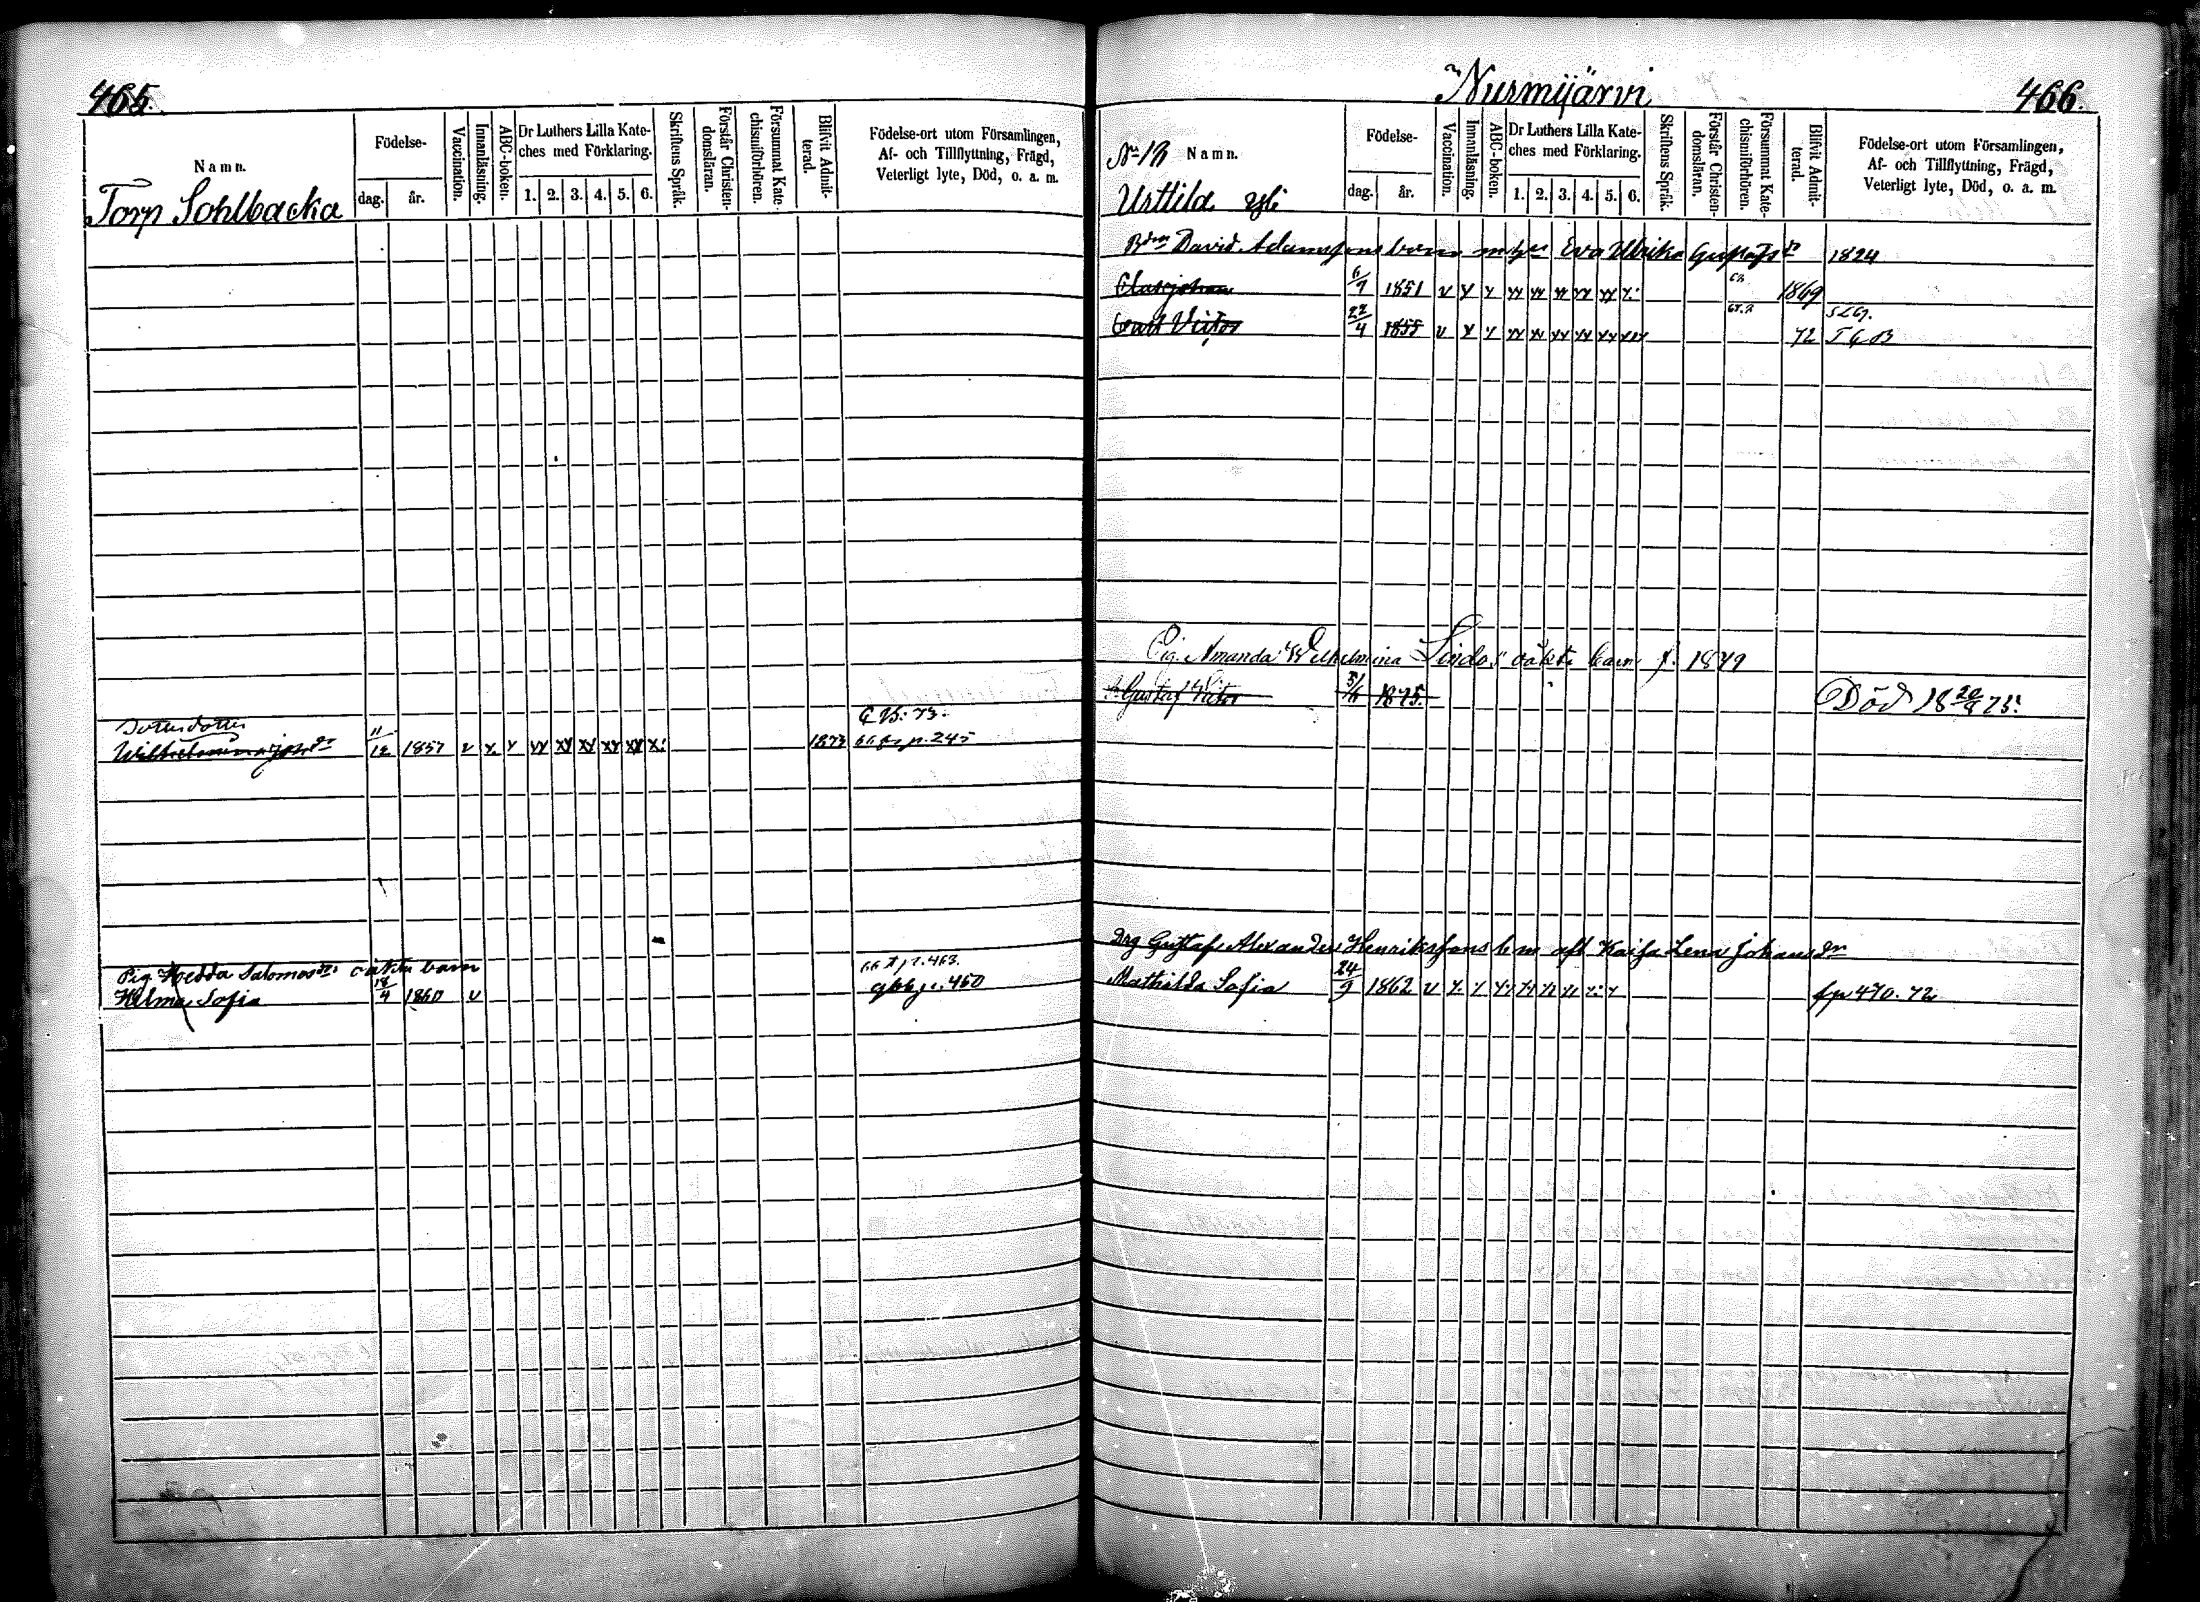 465.
Namn.
Torp Sohlbacka
Födelse-
dag. år.
Vaccination.
Innanläsning.
ABC-boken.
Dr Luthers Lilla Kate-
ches med Förklaring.
1. 2. 3. 4. 5. 6.
Skriftens Språk.
Förstår Christen-
domsläran.
Försummat Kate-
chismiförhören.
Blifvit Admit-
terad.
Födelse-ort utom Församlingen,
Af- och Tillflyttning, Frägd,
Veterligt lyte, Död, o. a. m.
Dottersdotter
11/12 1857 v x x xx xx xx xx xx x: 1873 p. 245
Pig. Hedda Salomonsdr oäkta barn p. 463.
Hilma Sofia 18/4 1860 v 460
Nurmijärvi
466.
No Namn.
Uotila
Födelse-
dag. år.
Vaccination.
Innanläsning.
ABC-boken.
Dr Luthers Lilla Kate-
ches med Förklaring.
1. 2. 3. 4. 5. 6.
Skriftens Språk.
Förstår Christen-
domsläran.
Försummat Kate-
chismiförhören.
Blifvit Admit-
terad.
Födelse-ort utom Församlingen,
Af- och Tillflyttning, Frägd,
Veterligt lyte, Död, o. a. m.
David Adamssons barn Eva Ulrika Gustafsdr 1824
6/7 1851 v x x xx xx xx xx xx x: 1869
Carl Victor 22/4 1855 v x x xx xx xx xx xx xxx 72
Pig. Amanda Wilhelmina Lindos oäkta barn f. 1849
Gustaf Victor 1875. Död 18 20/8 75.
Drg Gustaf Alexander Henrikssons Kaisa Lena Johansdr
Mathilda Sofia 24/9 1862 v fp 470. 72